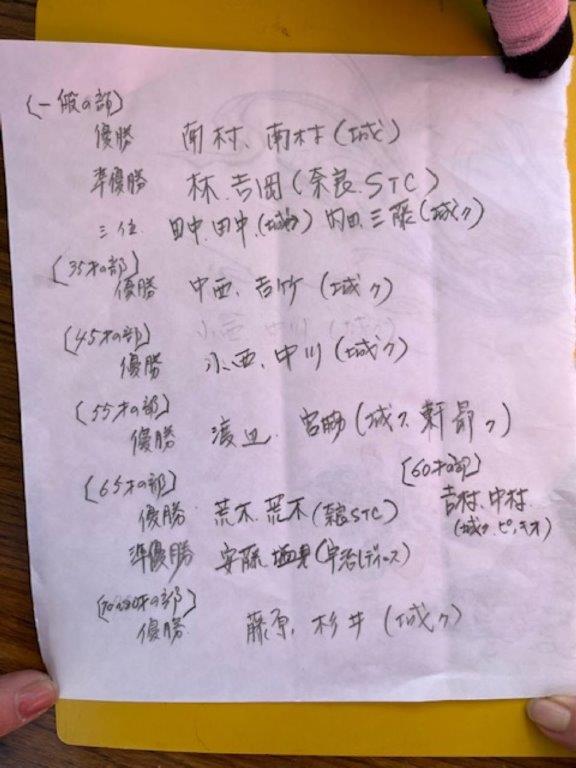 〔一般の部〕
優勝 南村、南村(城ク)
準優勝 林、吉岡(奈良STC)
三位 田中、田中(城ク) 内田、三藤(城ク)
〔35才の部〕
優勝 中西、吉竹(城ク)
〔45才の部〕
優勝 小西、中川(城ク)
〔55才の部〕
優勝 渡辺、宮崎(城ク、軒昴ク)
〔60才の部〕
吉村、中村
(城ク、ピノキオ)
〔65才の部〕
優勝 荒木、荒木(奈良STC)
準優勝 安藤、塩見(宇治レディース)
の部〕
優勝 藤原、杉井(城ク)